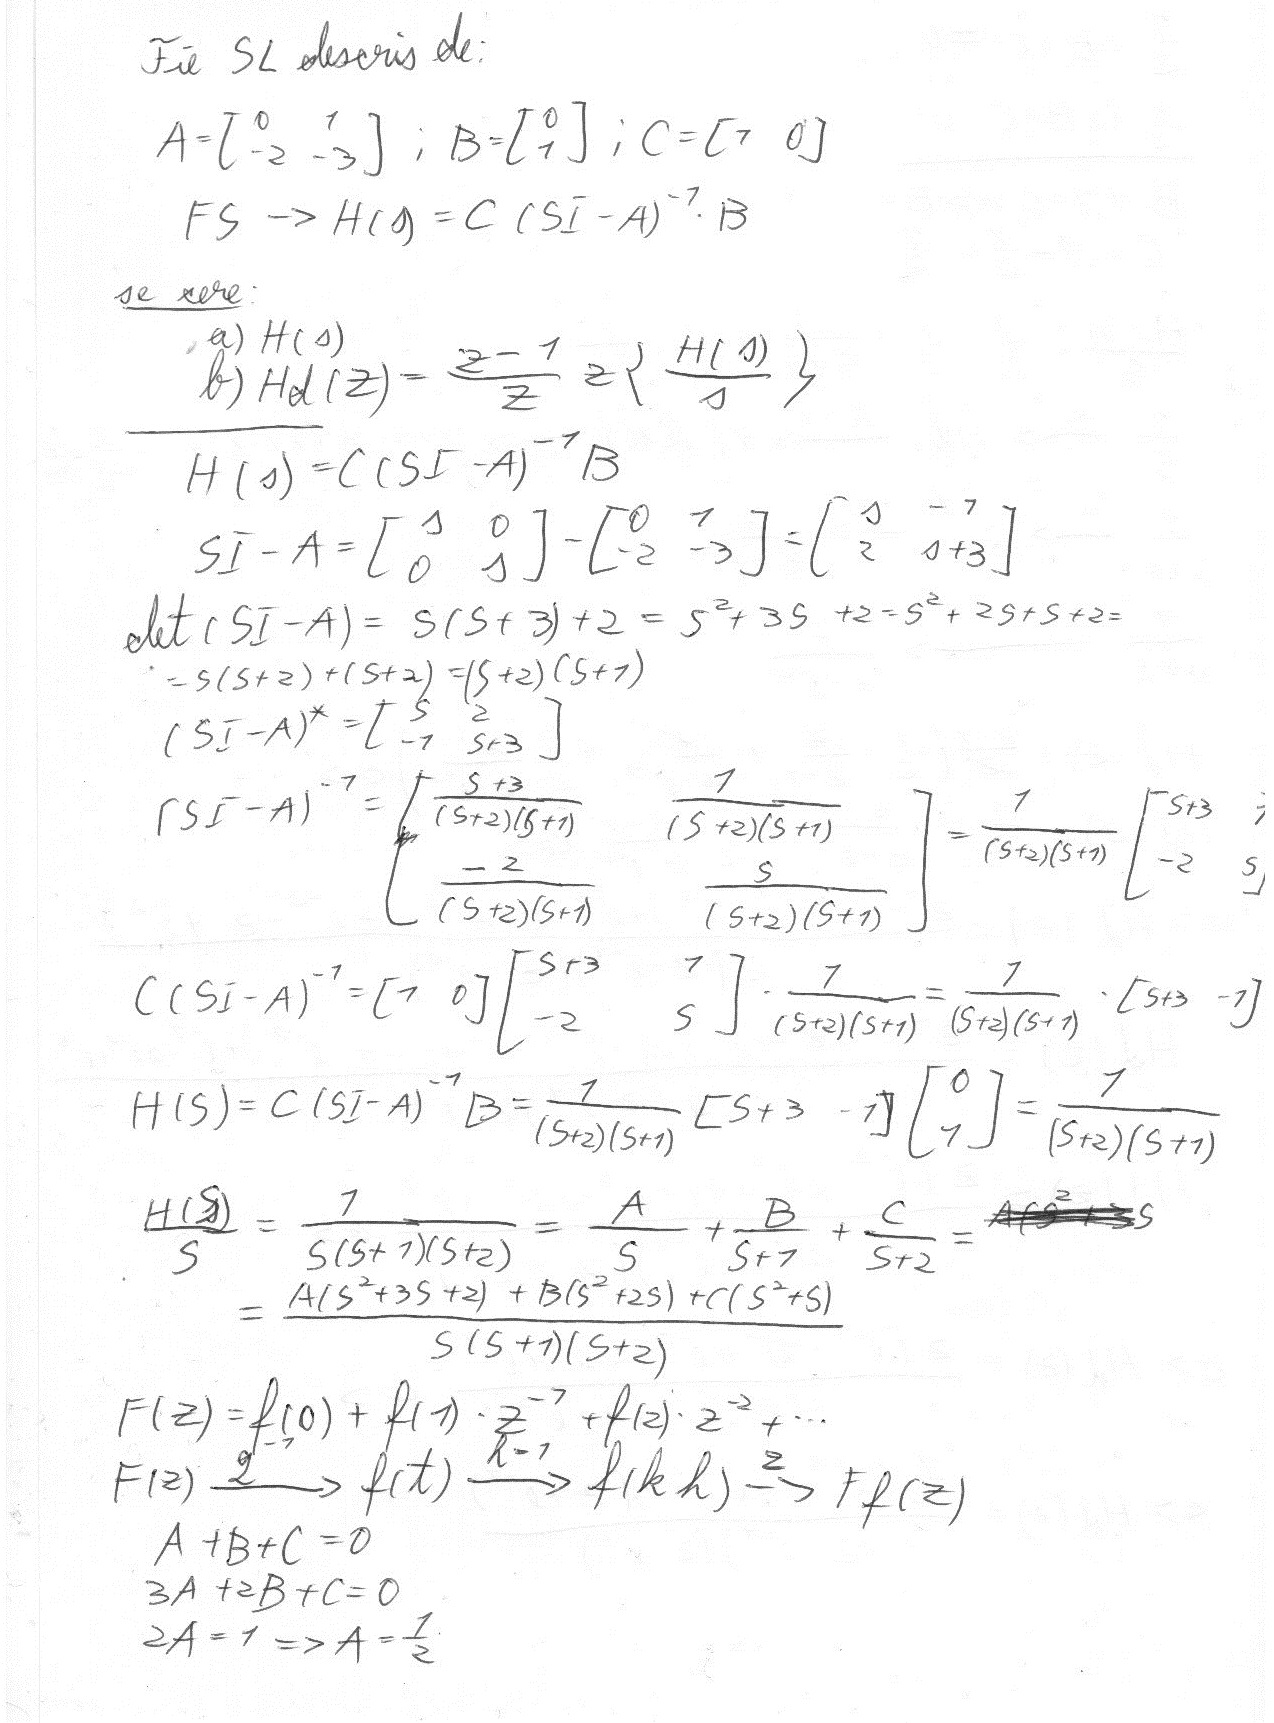 Fie SL descris de:
A=[0 1 -2 -3]; B=[0 1]; C=[1 0]
FS -> H(s) = C (SI-A)^-1 · B
se cere:
a) H(s)
b) Hd(z) = z-1/z z{H(s)/s}
H(s) = C(SI-A)^-1 B
SI-A = [s 0 0 s] - [0 1 -2 -3] = [s -1 2 s+3]
det(SI-A) = S(S+3)+2 = S^2+3S+2 = S^2+2S+S+2=
= S(S+2)+(S+2) = (S+2)(S+1)
(SI-A)* = [S 2 -1 S+3]
(SI-A)^-1 = [S+3/(S+2)(S+1) 1/(S+2)(S+1) -2/(S+2)(S+1) S/(S+2)(S+1)] = 1/(S+2)(S+1) [S+3 1 -2 S]
C(SI-A)^-1 = [1 0] [S+3 1 -2 S] · 1/(S+2)(S+1) = 1/(S+2)(S+1) · [S+3 -1]
H(S) = C(SI-A)^-1 B = 1/(S+2)(S+1) [S+3 -1] [0 1] = 1/(S+2)(S+1)
H(S)/S = 1/S(S+1)(S+2) = A/S + B/S+1 + C/S+2 =
= A(S^2+3S+2) + B(S^2+2S) + C(S^2+S)/S(S+1)(S+2)
F(z) = f(0) + f(1) · z^-1 + f(2) · z^-2 + ...
F(z) ℒ^-1 -> f(t) h=1 -> f(kh) z -> Ff(z)
A+B+C=0
3A+2B+C=0
2A=1 => A=1/2